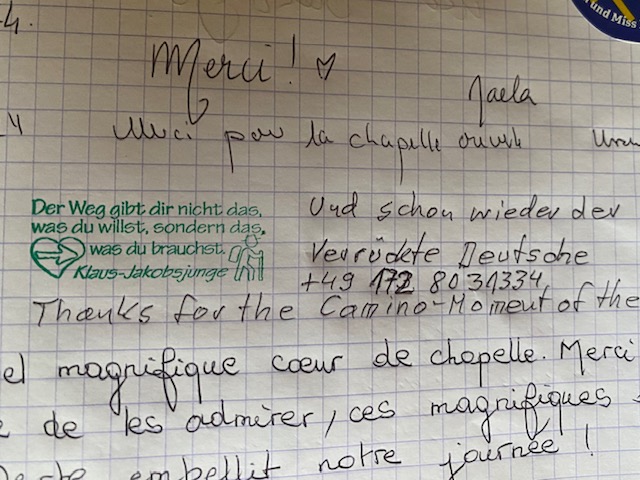 und Miss
Merci! ♡
Jaela
Merci pour la chapelle ouverte
Der Weg gibt dir nicht das,
was du willst, sondern das,
was du brauchst.
Klaus-Jakobsjunge
Und schon wieder der
Verrückte Deutsche
+49 172 8031334
Thanks for the Camino-Moment of the
el magnifique cœur de chapelle. Merci
de les admirer, ces magnifiques
embellit notre journée!